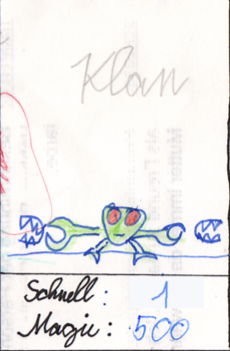 Klan
Schnell: 1
Magie: 500